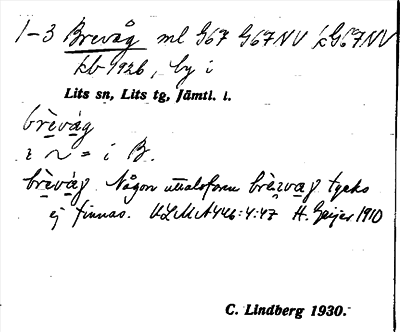 1-3 Brevåg ml G67 G67NV kG67NV
kb 1926, by i
Lits sn, Lits tg, Jämtl. l.
brèvág
i ~ = i B.
brèvág. Någon uttalsform brèvag tycks
ej finnas. ULMA 446:4:47 H. Geijer 1910
C. Lindberg 1930.